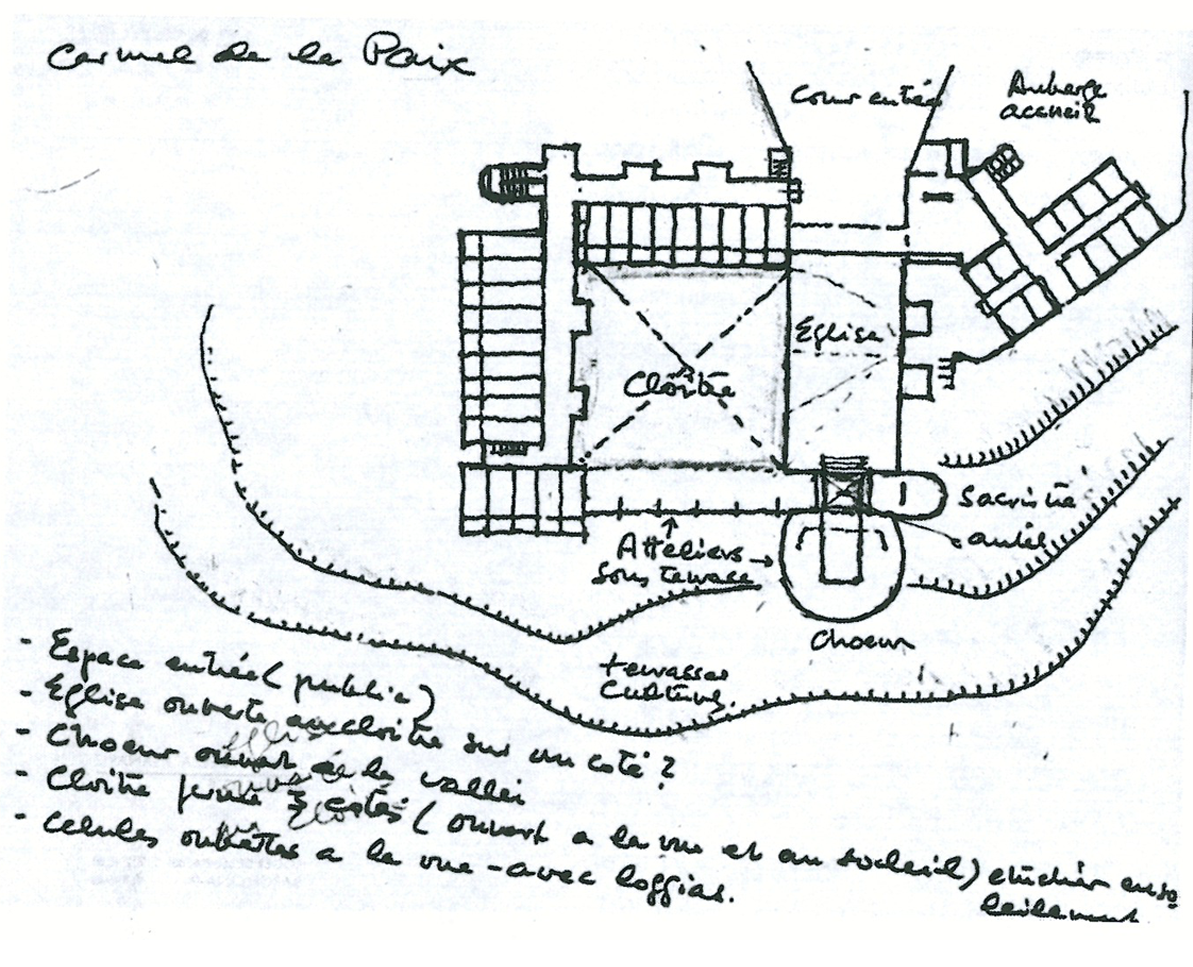 Carmel de la Paix
Cour entrée
Auberge
accueil
Eglise
Cloître
Sacristie
autel
Atteliers
Sous terrasse
Choeur
terrasses
culture
- Espace entrée (public)
- Eglise ouverte avec cloitre sur un coté ?
- Choeur ouvert a la vallée
- Cloitre fermé 3 cotés (ouvert a la vue et au soleil) etudier enso
leilement
- Celules ouvertes a la vue - avec loggias.